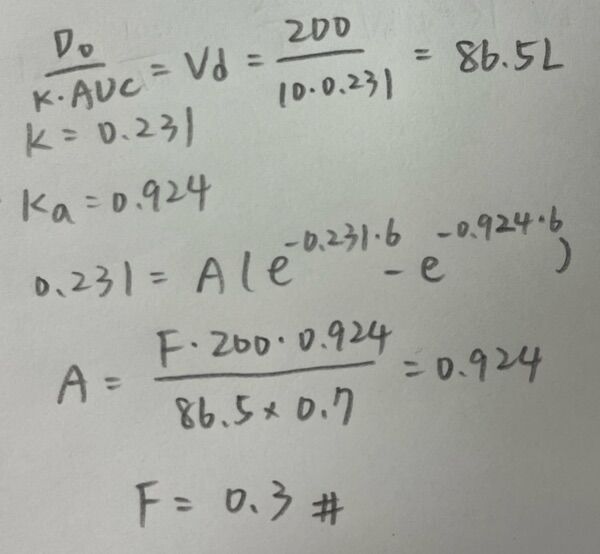 D₀/(K·AUC) = Vd = 200/(10·0.231) = 86.5L
K = 0.231
Ka = 0.924
0.231 = A(e^(-0.231·6) - e^(-0.924·6))
A = (F·200·0.924)/(86.5×0.7) = 0.924
F = 0.3 #